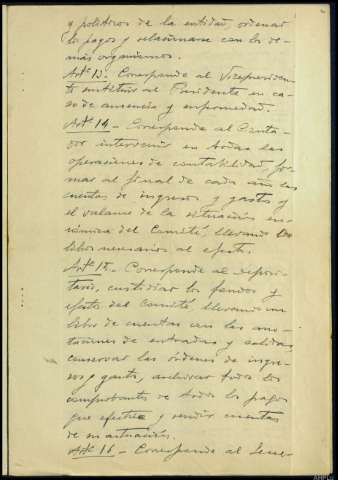 y políticos de la entidad, ordenar
los pagos y relacionarse con los de-
más organismos.
Artº 13. Corresponde al Vicepresiden-
te sustituir al Presidente en ca-
so de ausencia y enfermedad.
Artº 14 - Corresponde al Conta-
dor intervenir en todas las
operaciones de contabilidad, for-
mar al final de cada año las
cuentas de ingresos y gastos y
el balance de la situación eco-
nómica del Comité, llevando los
libros necesarios al efecto.
Artº 15. - Corresponde al deposi-
tario, custodiar los fondos y
efectos del Comité, llevando un
libro de cuentas con las ano-
taciones de entradas y salidas,
conservar las órdenes de ingre-
sos y gastos, archivar todos los
comprobantes de todos los pagos
que efectue y rendir cuentas
de su actuación.
Artº 16. - Corresponde al Secre-
AHPLu